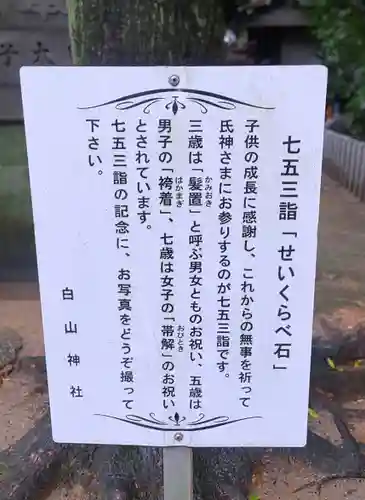 七五三詣「せいくらべ石」
子供の成長に感謝し、これからの無事を祈って
氏神さまにお参りするのが七五三詣です。
三歳は「髪置」と呼ぶ男女とものお祝い、五歳は
かみおき
男子の「袴着」、七歳は女子の「帯解」のお祝い
はかまぎ
おびとき
とされています。
七五三詣の記念に、お写真をどうぞ撮って
下さい。
白山神社